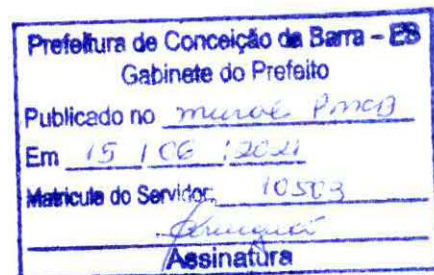 Prefeitura de Conceição da Barra - ES
Gabinete do Prefeito
Publicado no mural PMCB
Em 15 / 06 / 2021
Matricula do Servidor: 10503
Assinatura